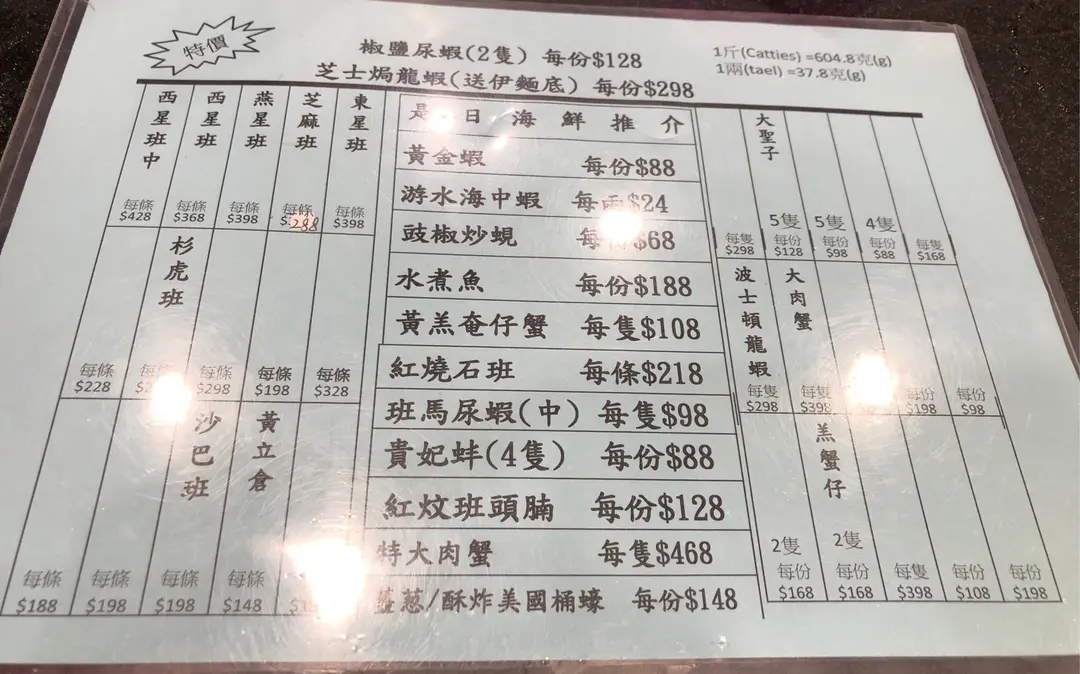 特價
椒鹽尿蝦(2隻) 每份$128
芝士焗龍蝦(送伊麵底) 每份$298
1斤(Catties) =604.8克(g)
1兩(tael) =37.8克(g)
西星班中 每條 $428
西星班 每條 $368
燕星班 每條 $398
芝麻班 每條 288
東星班 每條 $398
每條 $228
杉虎班 每條
每條 $298
每條 $198
每條 $328
每條 $188
每條 $198
沙巴班 每條 $198
黃立倉 每條 $148
是日海鮮推介
黃金蝦 每份$88
游水海中蝦 每兩$24
豉椒炒蜆 每 $68
水煮魚 每份$188
黃羔奄仔蟹 每隻$108
紅燒石班 每條$218
班馬尿蝦(中) 每隻$98
貴妃蚌(4隻) 每份$88
紅炆班頭腩 每份$128
特大肉蟹 每隻$468
薑蔥/酥炸美國桶蠔 每份$148
每隻 $298
大聖子 5隻 每份 $128
5隻 每份 $98
4隻 每份 $88
每隻 $168
波士頓龍蝦 每隻 $298
大肉蟹 每隻 $398
每份 $198
每份 $98
2隻 每份 $168
羔蟹仔 2隻 每份 $168
每隻 $398
每份 $108
每份 $198